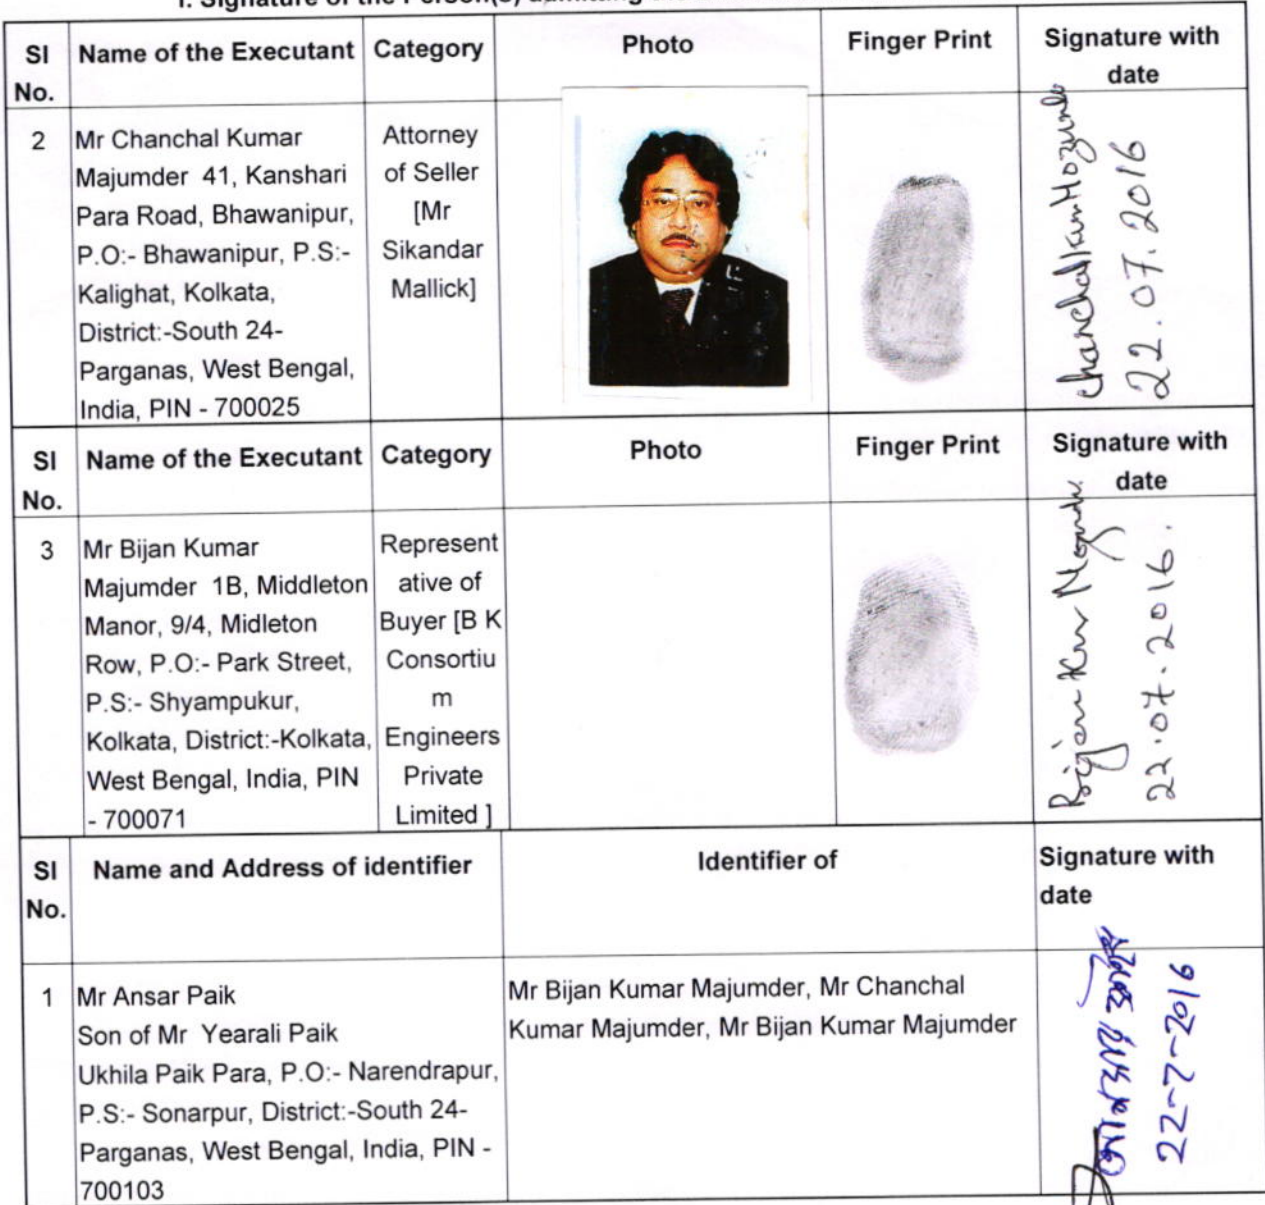 I. Signature of the Person(s) admitting the
Sl No.
Name of the Executant
Category
Photo
Finger Print
Signature with date
2
Mr Chanchal Kumar
Majumder 41, Kanshari
Para Road, Bhawanipur,
P.O:- Bhawanipur, P.S:-
Kalighat, Kolkata,
District:-South 24-
Parganas, West Bengal,
India, PIN - 700025
Attorney
of Seller
[Mr
Sikandar
Mallick]
Chanchal Kum Mozumde
22.07.2016
Sl No.
Name of the Executant
Category
Photo
Finger Print
Signature with date
3
Mr Bijan Kumar
Majumder 1B, Middleton
Manor, 9/4, Midleton
Row, P.O:- Park Street,
P.S:- Shyampukur,
Kolkata, District:-Kolkata,
West Bengal, India, PIN
- 700071
Represent
ative of
Buyer [B K
Consortiu
m
Engineers
Private
Limited ]
Bijan Kur
22.07.2016.
Sl No.
Name and Address of identifier
Identifier of
Signature with
date
1
Mr Ansar Paik
Son of Mr Yearali Paik
Ukhila Paik Para, P.O:- Narendrapur,
P.S:- Sonarpur, District:-South 24-
Parganas, West Bengal, India, PIN -
700103
Mr Bijan Kumar Majumder, Mr Chanchal
Kumar Majumder, Mr Bijan Kumar Majumder
আনসার পাইক
22-7-2016